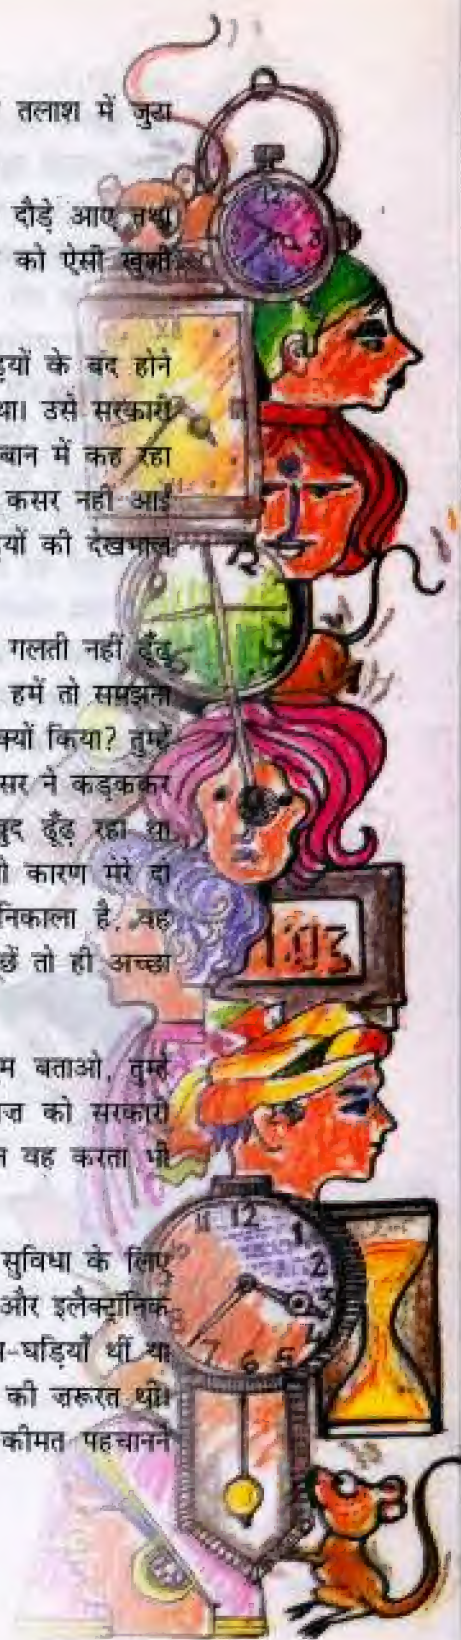 तलाश में जुटा
दौड़े आए तथा
को ऐसी खुशी
ड़ियों के बंद होने
था। उसे सरकारी
बान में कह रहा
कसर नहीं आई
यों की देखभाल
गलती नहीं ढूँढ़
हमें तो समझना
क्यों किया? तुम्हें
सर ने कड़ककर
खुद ढूँढ़ रहा था
कारण मेरे दो
निकाला है, वह
छें तो ही अच्छा
म बताओ, तुम्हें
को सरकारी
वह करता भी
सुविधा के लिए
और इलैक्ट्रॉनिक
घड़ियाँ थीं या
की ज़रूरत थी।
कीमत पहचानने
12
3
12
103
11 12 1
2
3
8
7 6 5